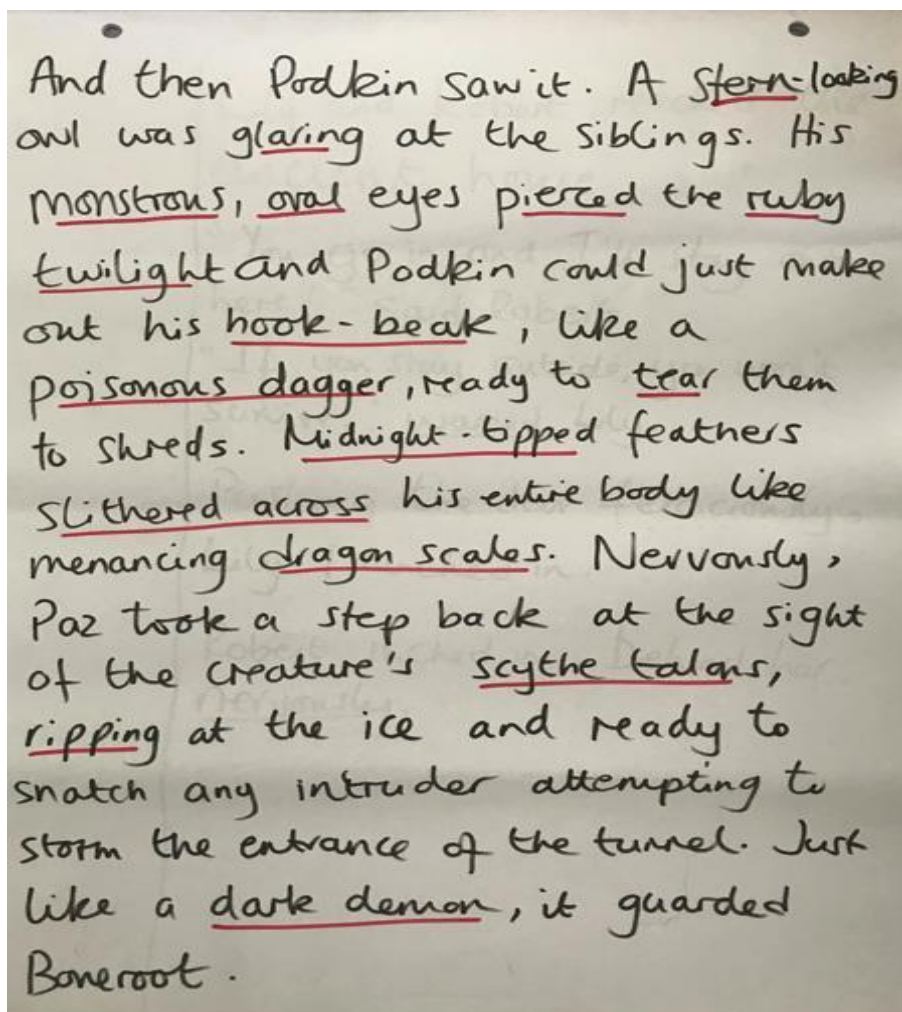 And then Podkin saw it. A stern-looking
owl was glaring at the siblings. His
monstrous, oval eyes pierced the ruby
twilight and Podkin could just make
out his hook-beak, like a
poisonous dagger, ready to tear them
to shreds. Midnight-tipped feathers
slithered across his entire body like
menancing dragon scales. Nervously,
Paz took a step back at the sight
of the creature's scythe talons,
ripping at the ice and ready to
snatch any intruder attempting to
storm the entrance of the tunnel. Just
like a dark demon, it guarded
Boneroot.